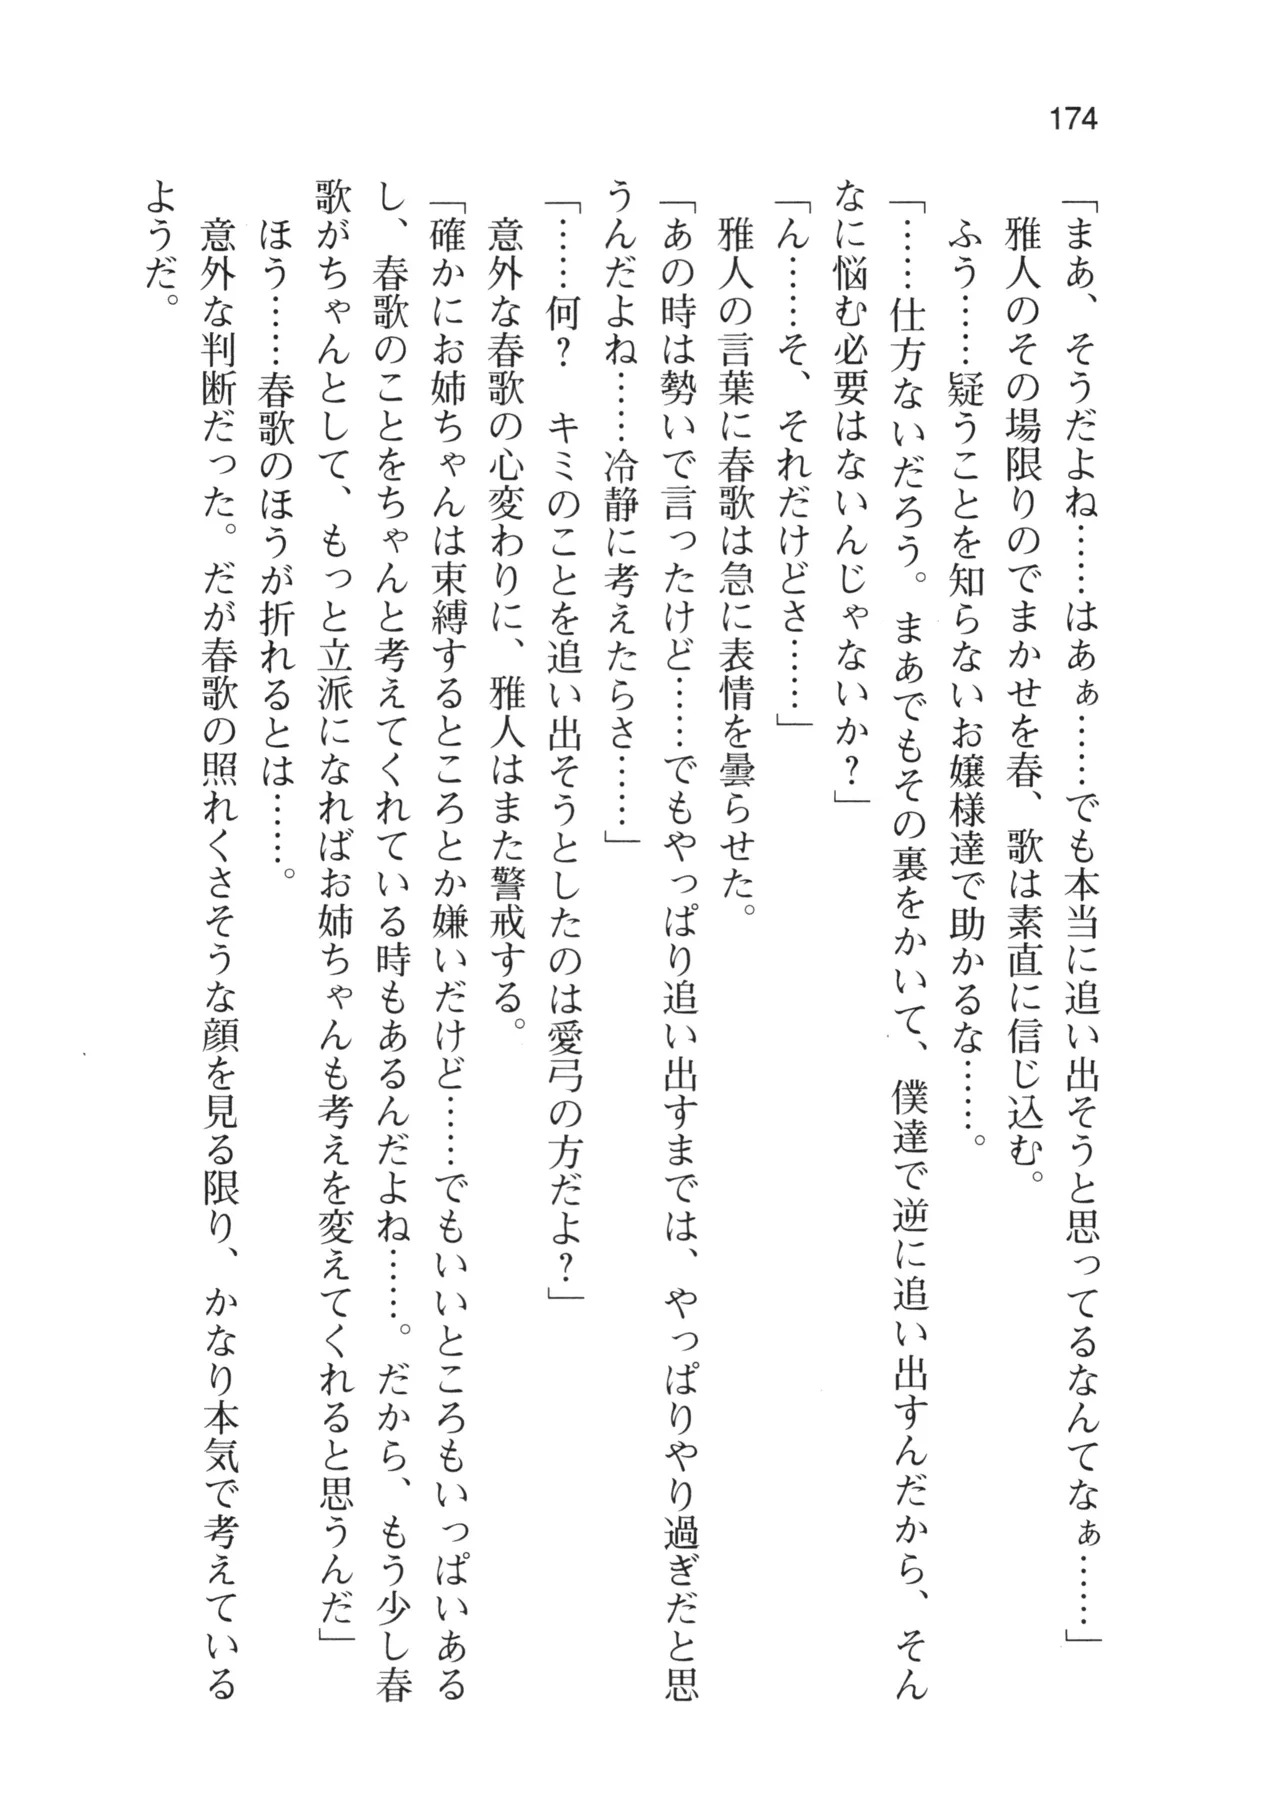 174
「まあ、そうだよね……はあぁ……でも本当に追い出そうと思ってるなんてなぁ……」
雅人のその場限りのでまかせを春、歌は素直に信じ込む。
ふう……疑うことを知らないお嬢様達で助かるな……。
「……仕方ないだろう。まあでもその裏をかいて、僕達で逆に追い出すんだから、そん
なに悩む必要はないんじゃないか？」
「ん……そ、それだけどさ……」
雅人の言葉に春歌は急に表情を曇らせた。
「あの時は勢いで言ったけど……でもやっぱり追い出すまでは、やっぱりやり過ぎだと思
うんだよね……冷静に考えたらさ……」
「……何？　キミのことを追い出そうとしたのは愛弓の方だよ？」
意外な春歌の心変わりに、雅人はまた警戒する。
「確かにお姉ちゃんは束縛するところとか嫌いだけど……でもいいところもいっぱいある
し、春歌のことをちゃんと考えてくれている時もあるんだよね……。だから、もう少し春
歌がちゃんとして、もっと立派になればお姉ちゃんも考えを変えてくれると思うんだ」
ほう……春歌のほうが折れるとは……。
意外な判断だった。だが春歌の照れくさそうな顔を見る限り、かなり本気で考えている
ようだ。